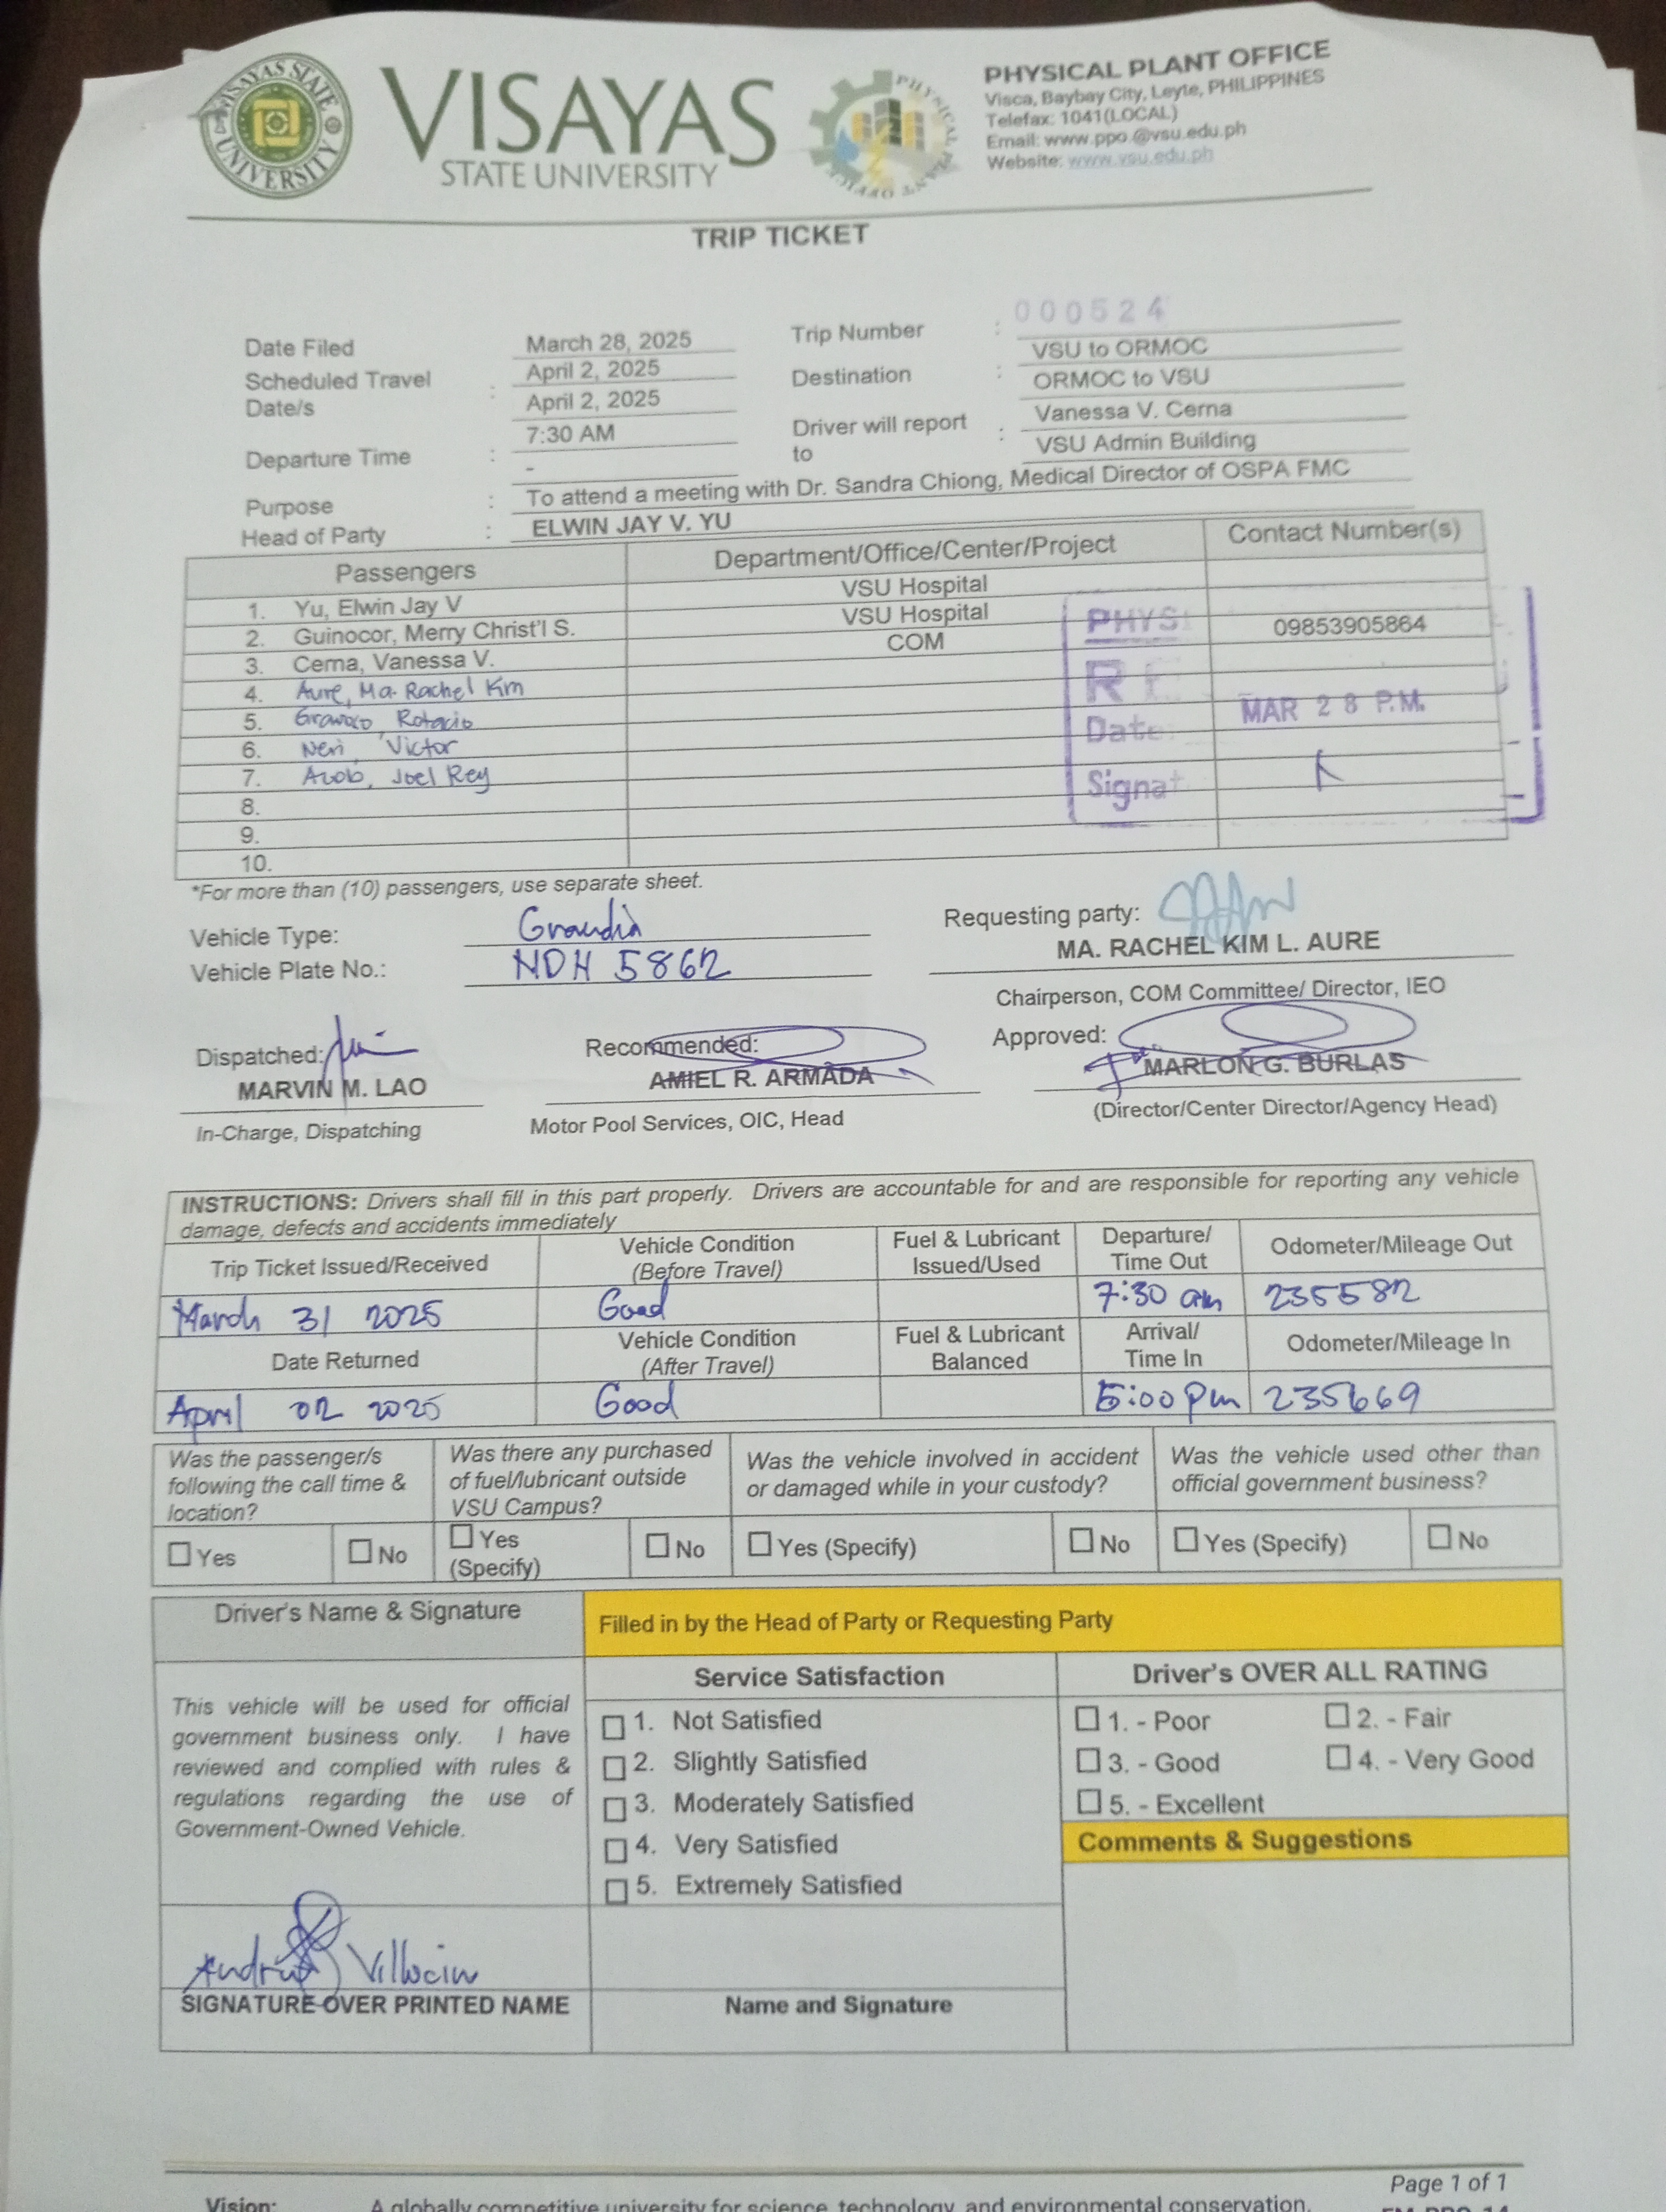 VISAYAS STATE UNIVERSITY
VISAYAS
STATE UNIVERSITY
PHYSICAL PLANT OFFICE
PHYSICAL PLANT OFFICE
Visca, Baybay City, Leyte, PHILIPPINES
Telefax: 1041(LOCAL)
Email: www.ppo.@vsu.edu.ph
Website: www.vsu.edu.ph
TRIP TICKET
Date Filed March 28, 2025 Trip Number : 000524
Scheduled Travel Date/s : April 2, 2025 Destination : VSU to ORMOC
April 2, 2025 ORMOC to VSU
Departure Time : 7:30 AM Driver will report to : Vanessa V. Cerna
- VSU Admin Building
Purpose : To attend a meeting with Dr. Sandra Chiong, Medical Director of OSPA FMC
Head of Party : ELWIN JAY V. YU
Passengers Department/Office/Center/Project Contact Number(s)
1. Yu, Elwin Jay V VSU Hospital
2. Guinocor, Merry Christ'l S. VSU Hospital
3. Cerna, Vanessa V. COM 09853905864
4. Aure, Ma. Rachel Kim
5. Rotacio
6. Neri, Victor
7. Joel Rey
8.
9.
10.
PHYS
R E
Date MAR 28 P.M.
Signat
*For more than (10) passengers, use separate sheet.
Vehicle Type: Grandia
Vehicle Plate No.: NDH 5862
Requesting party:
MA. RACHEL KIM L. AURE
Chairperson, COM Committee/ Director, IEO
Dispatched: Recommended: Approved:
MARVIN M. LAO AMIEL R. ARMADA MARLON G. BURLAS
In-Charge, Dispatching Motor Pool Services, OIC, Head (Director/Center Director/Agency Head)
INSTRUCTIONS: Drivers shall fill in this part properly. Drivers are accountable for and are responsible for reporting any vehicle
damage, defects and accidents immediately
Trip Ticket Issued/Received Vehicle Condition (Before Travel) Fuel & Lubricant Issued/Used Departure/ Time Out Odometer/Mileage Out
March 31 2025 Good 7:30 am 235582
Date Returned Vehicle Condition (After Travel) Fuel & Lubricant Balanced Arrival/ Time In Odometer/Mileage In
April 02 2025 Good 5:00 pm 235669
Was the passenger/s following the call time & location? Was there any purchased of fuel/lubricant outside VSU Campus? Was the vehicle involved in accident or damaged while in your custody? Was the vehicle used other than official government business?
☐ Yes ☐ No ☐ Yes (Specify) ☐ No ☐ Yes (Specify) ☐ No ☐ Yes (Specify) ☐ No
Driver's Name & Signature Filled in by the Head of Party or Requesting Party
Service Satisfaction Driver's OVER ALL RATING
This vehicle will be used for official
government business only. I have
reviewed and complied with rules &
regulations regarding the use of
Government-Owned Vehicle.
☐ 1. Not Satisfied
☐ 2. Slightly Satisfied
☐ 3. Moderately Satisfied
☐ 4. Very Satisfied
☐ 5. Extremely Satisfied
☐ 1. - Poor ☐ 2. - Fair
☐ 3. - Good ☐ 4. - Very Good
☐ 5. - Excellent
Comments & Suggestions
Villocin
SIGNATURE OVER PRINTED NAME Name and Signature
Page 1 of 1
Vision: A globally competitive university for science, technology, and environmental conservation.